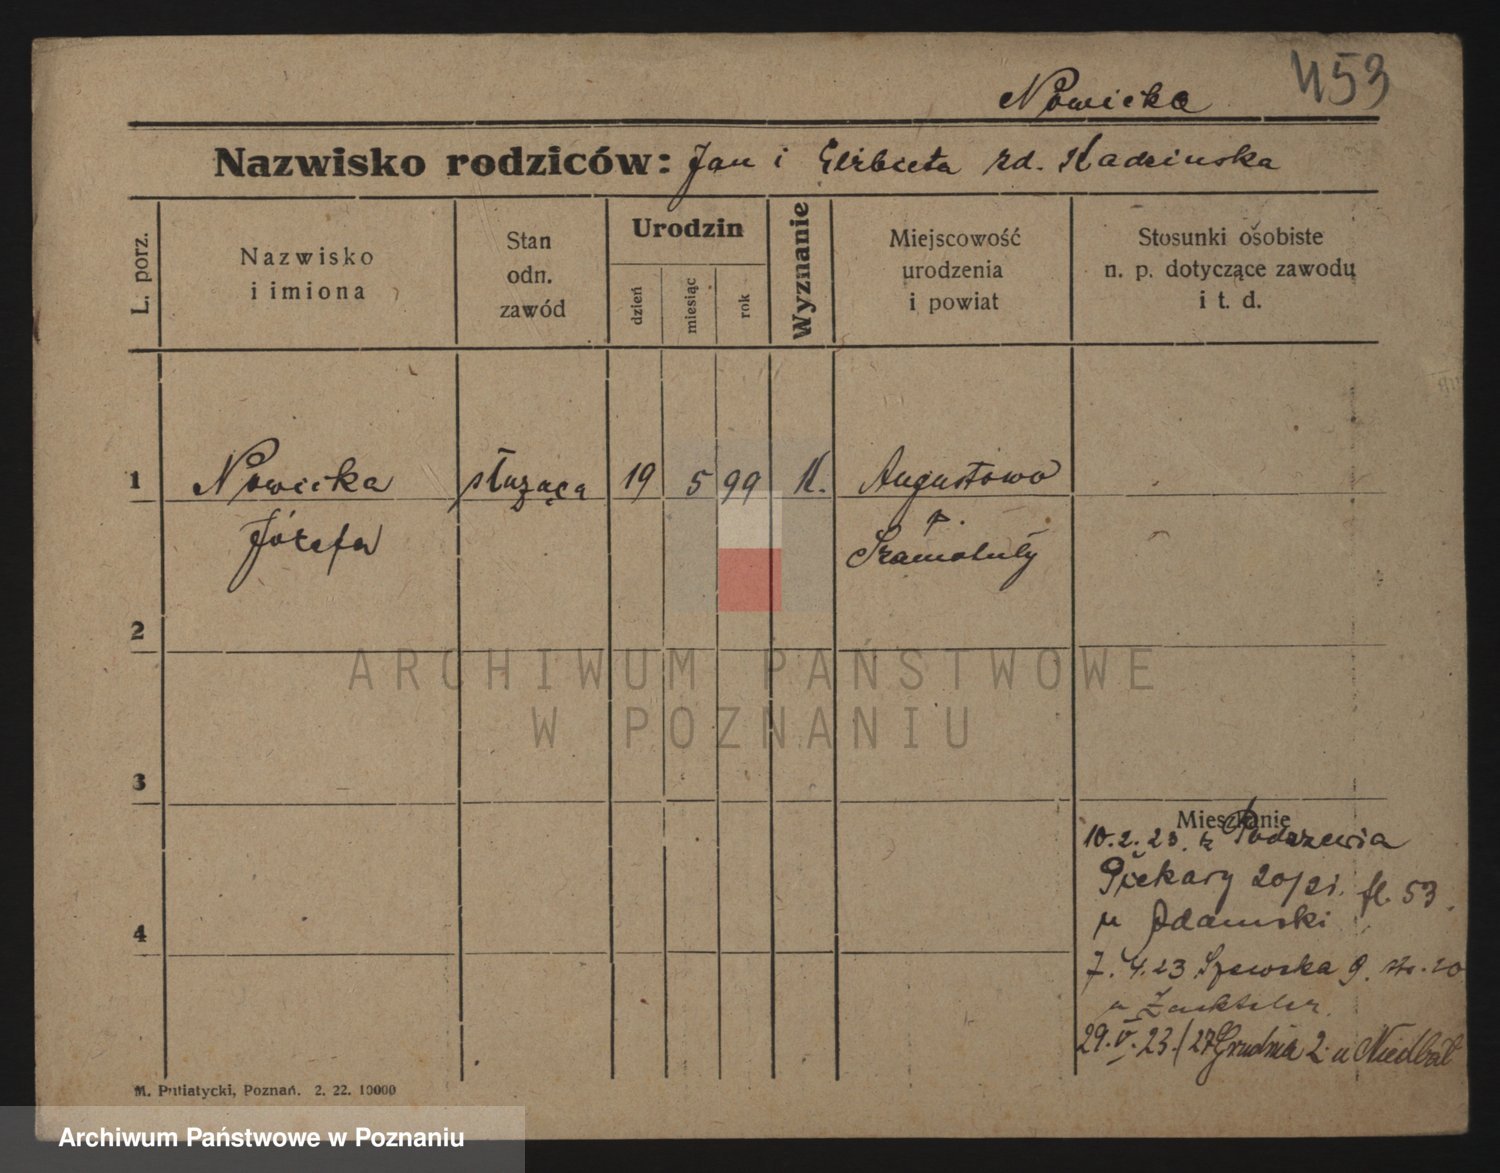 453
Nowicka
Nazwisko rodziców: Jan i Elżbieta rd. Kadzinska
L. porz.
Nazwisko
i imiona
Stan
odn.
zawód
Urodzin
dzień
miesiąc
rok
Wyznanie
Miejscowość
urodzenia
i powiat
Stosunki osobiste
n. p. dotyczące zawodu
i t. d.
1
Nowicka
służąca
19
5
99
K.
Augustowo
Józefa
p.
Szamotuły
2
ARCHIWUM PAŃSTWOWE
W POZNANIU
3
Mieszkanie
10.2.23. z Podrzewia
Piekary 20/21. fl. 53.
u Adamski
4
7.4.23 Szewska 9. 20
u
29.V.23./27 Grudnia 2. u Niedbał
M. Putiatycki, Poznań. 2. 22. 10000
Archiwum Państwowe w Poznaniu